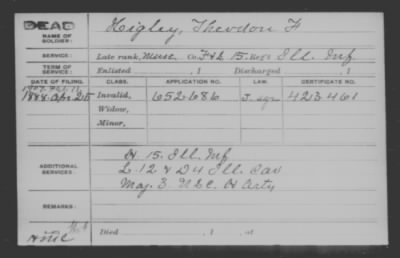 DEAD
Higley, Theodon F
NAME OF SOLDIER:
SERVICE: Late rank, Co. F & L 15 Reg't Ill. Inf
TERM OF SERVICE: Enlisted , 1 Discharged , 1
DATE OF FILING. CLASS. APPLICATION NO. LAW. CERTIFICATE NO.
1888 Apr 25 Invalid, 652686 423461
Widow,
Minor,
ADDITIONAL SERVICES: H 15. Ill. Inf
L 12 & D 4 Ill. Cav
Maj. 3. U.S.C. H Arty
REMARKS:
Died , 1 , at